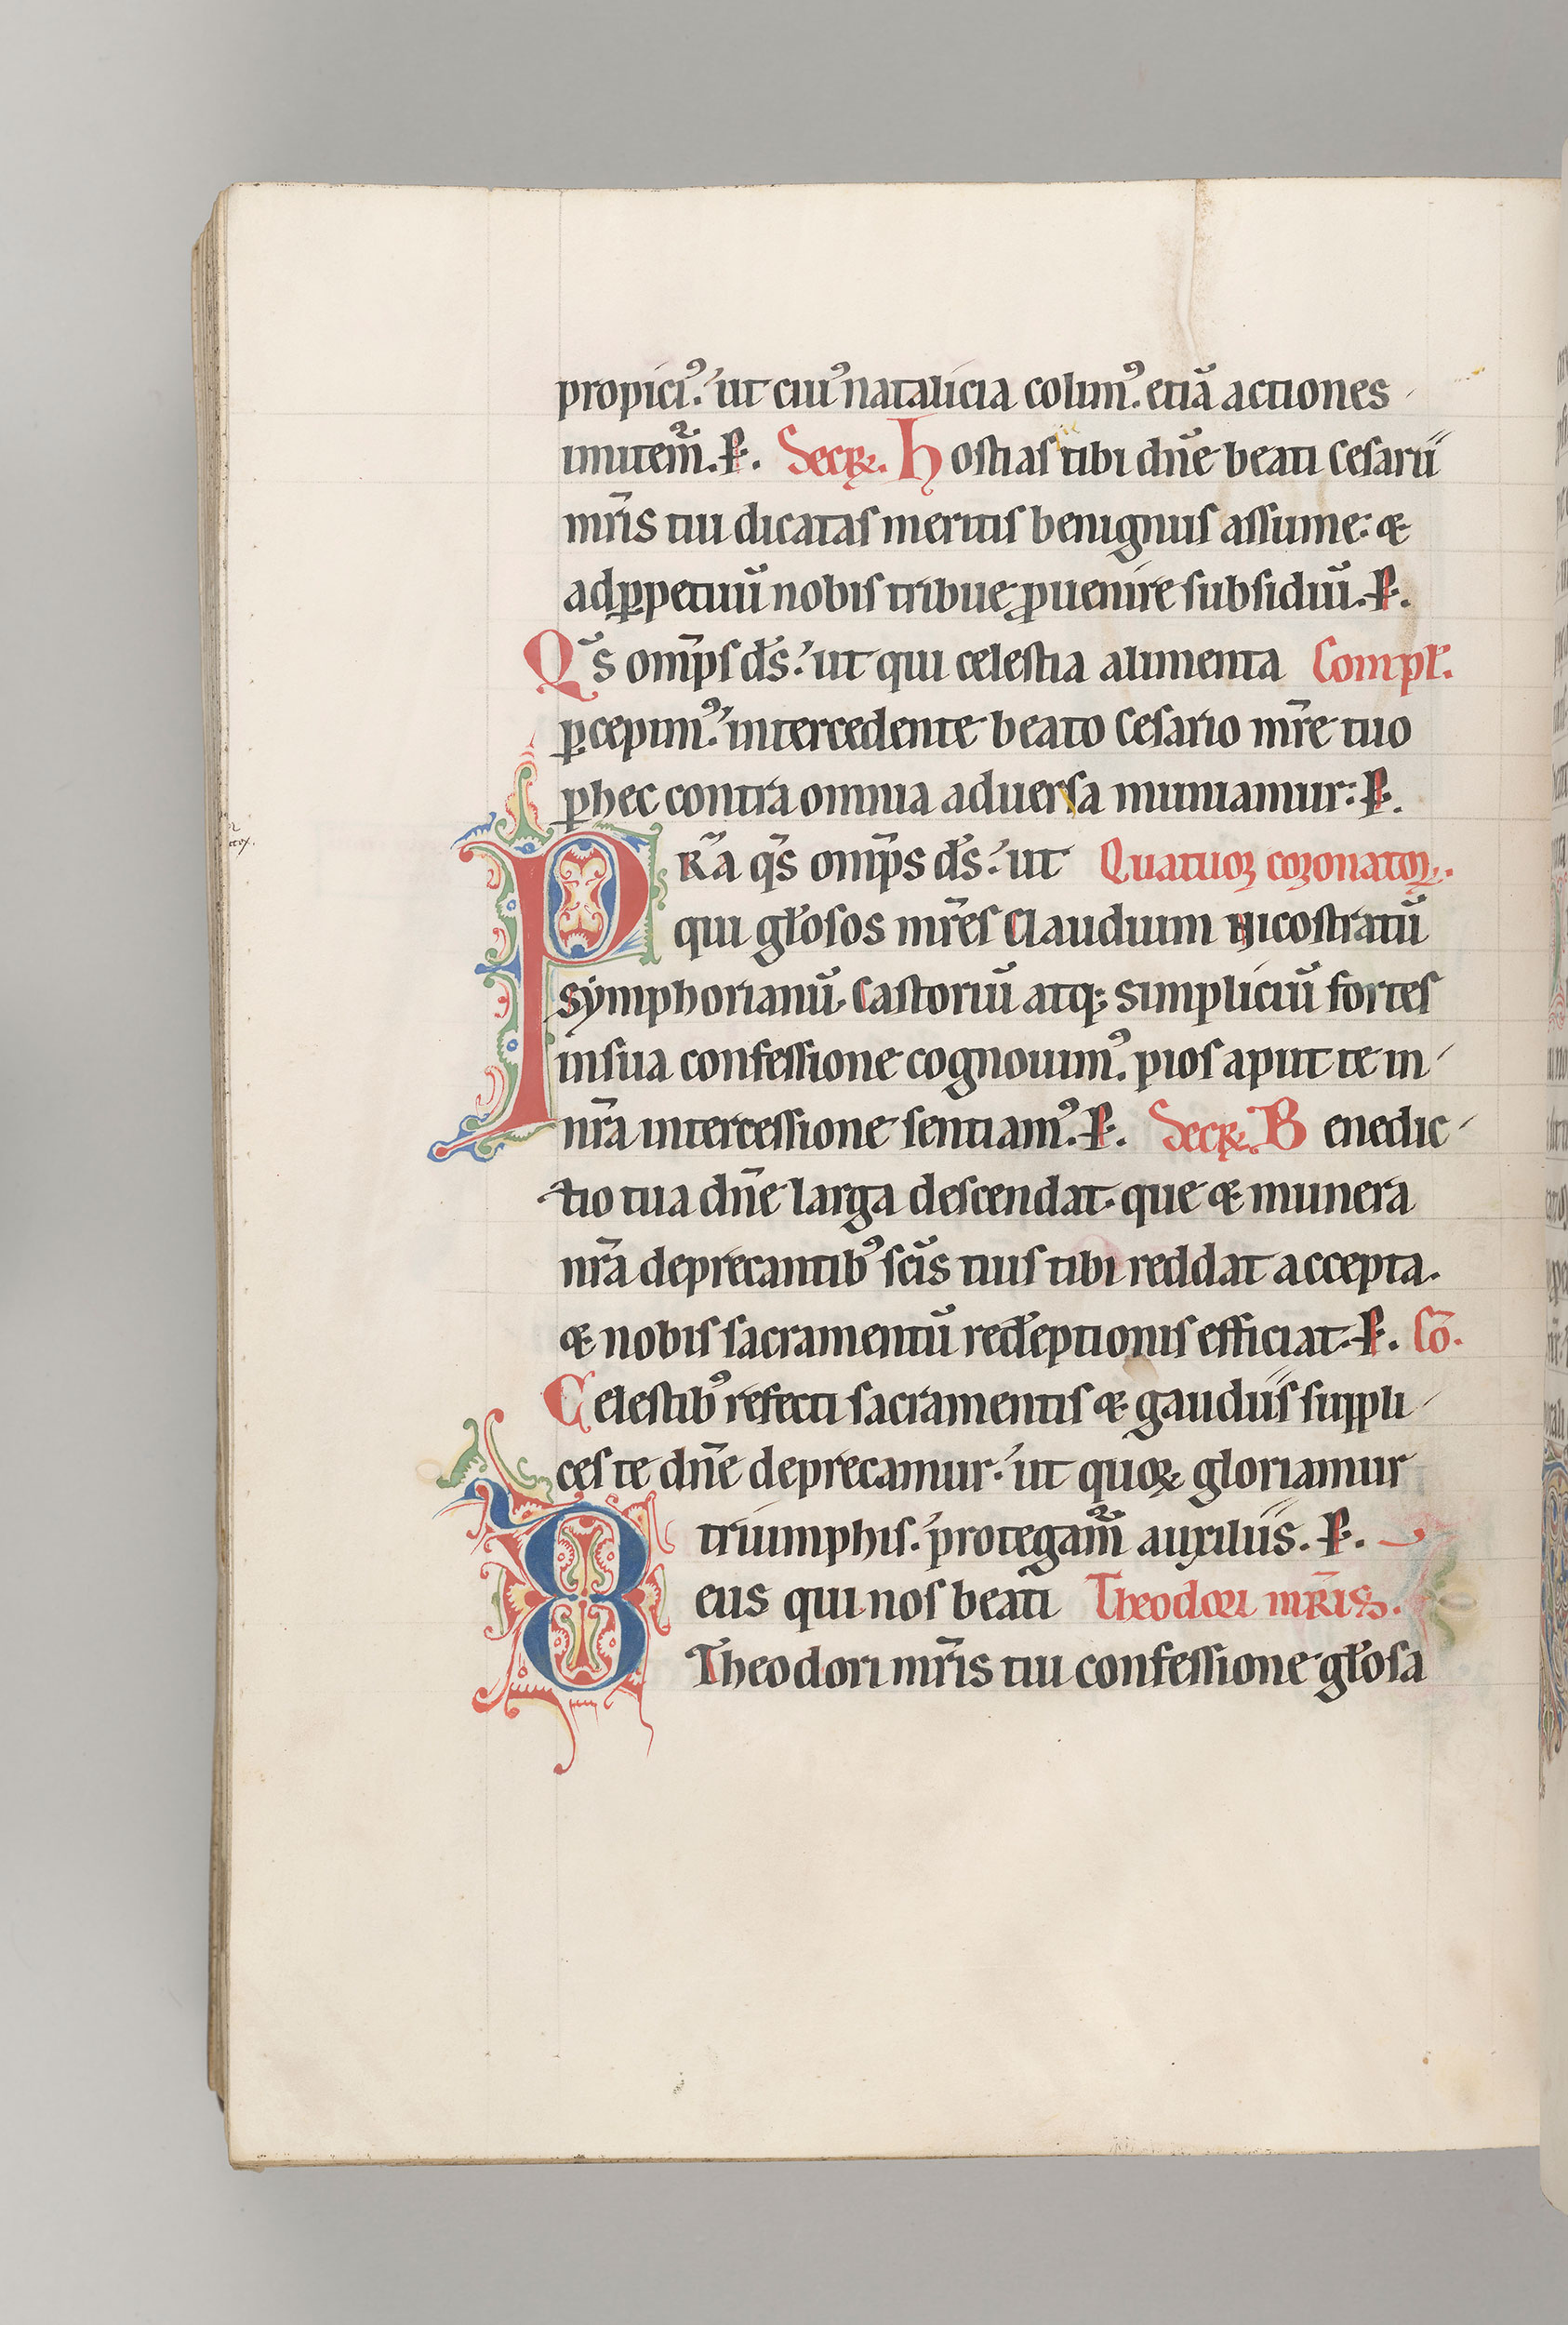 propiciꝰ. ut cuiꝰ natalicia colimꝰ. etiā actiones
imitem̄. P. Secr̄. Hostias tibi dn̄e beati Cesarii
mr̄is tui dicatas meritis benignus assume: &
ad ꝑpetuū nobis tribue ꝓuenire subsidiū. P.
Qs̄ omp̄s ds̄. ut qui celestia alimenta Compl̄.
ꝑcepimꝰ. intercedente beato Cesario mr̄e tuo
ꝑ hec contra omnia aduersa muniamur: P.
PRA qs̄ omp̄s ds̄. ut Quatuor coronatoꝝ.
qui gl̄osos mr̄es Claudium Nicostratū
Symphorianū Castoriū atq; Simpliciū fortes
in sua confessione cognouimꝰ. pios aput te in
nr̄a intercessione sentiamꝰ. P. Secr̄. Benedic
tio tua dn̄e larga descendat. que & munera
nr̄a deprecantibꝰ sc̄is tuis tibi reddat accepta.
& nobis sacramentū red̄eptionis efficiat. P. Cō.
Celestibꝰ refecti sacramentis & gaudiis suppli
ces te dn̄e deprecamur. ut quoꝝ gloriamur
triumphis. protegam̄ auxiliis. P.
Deus qui nos beati Theodori mr̄is.
Theodori mr̄is tui confessione gl̄osa